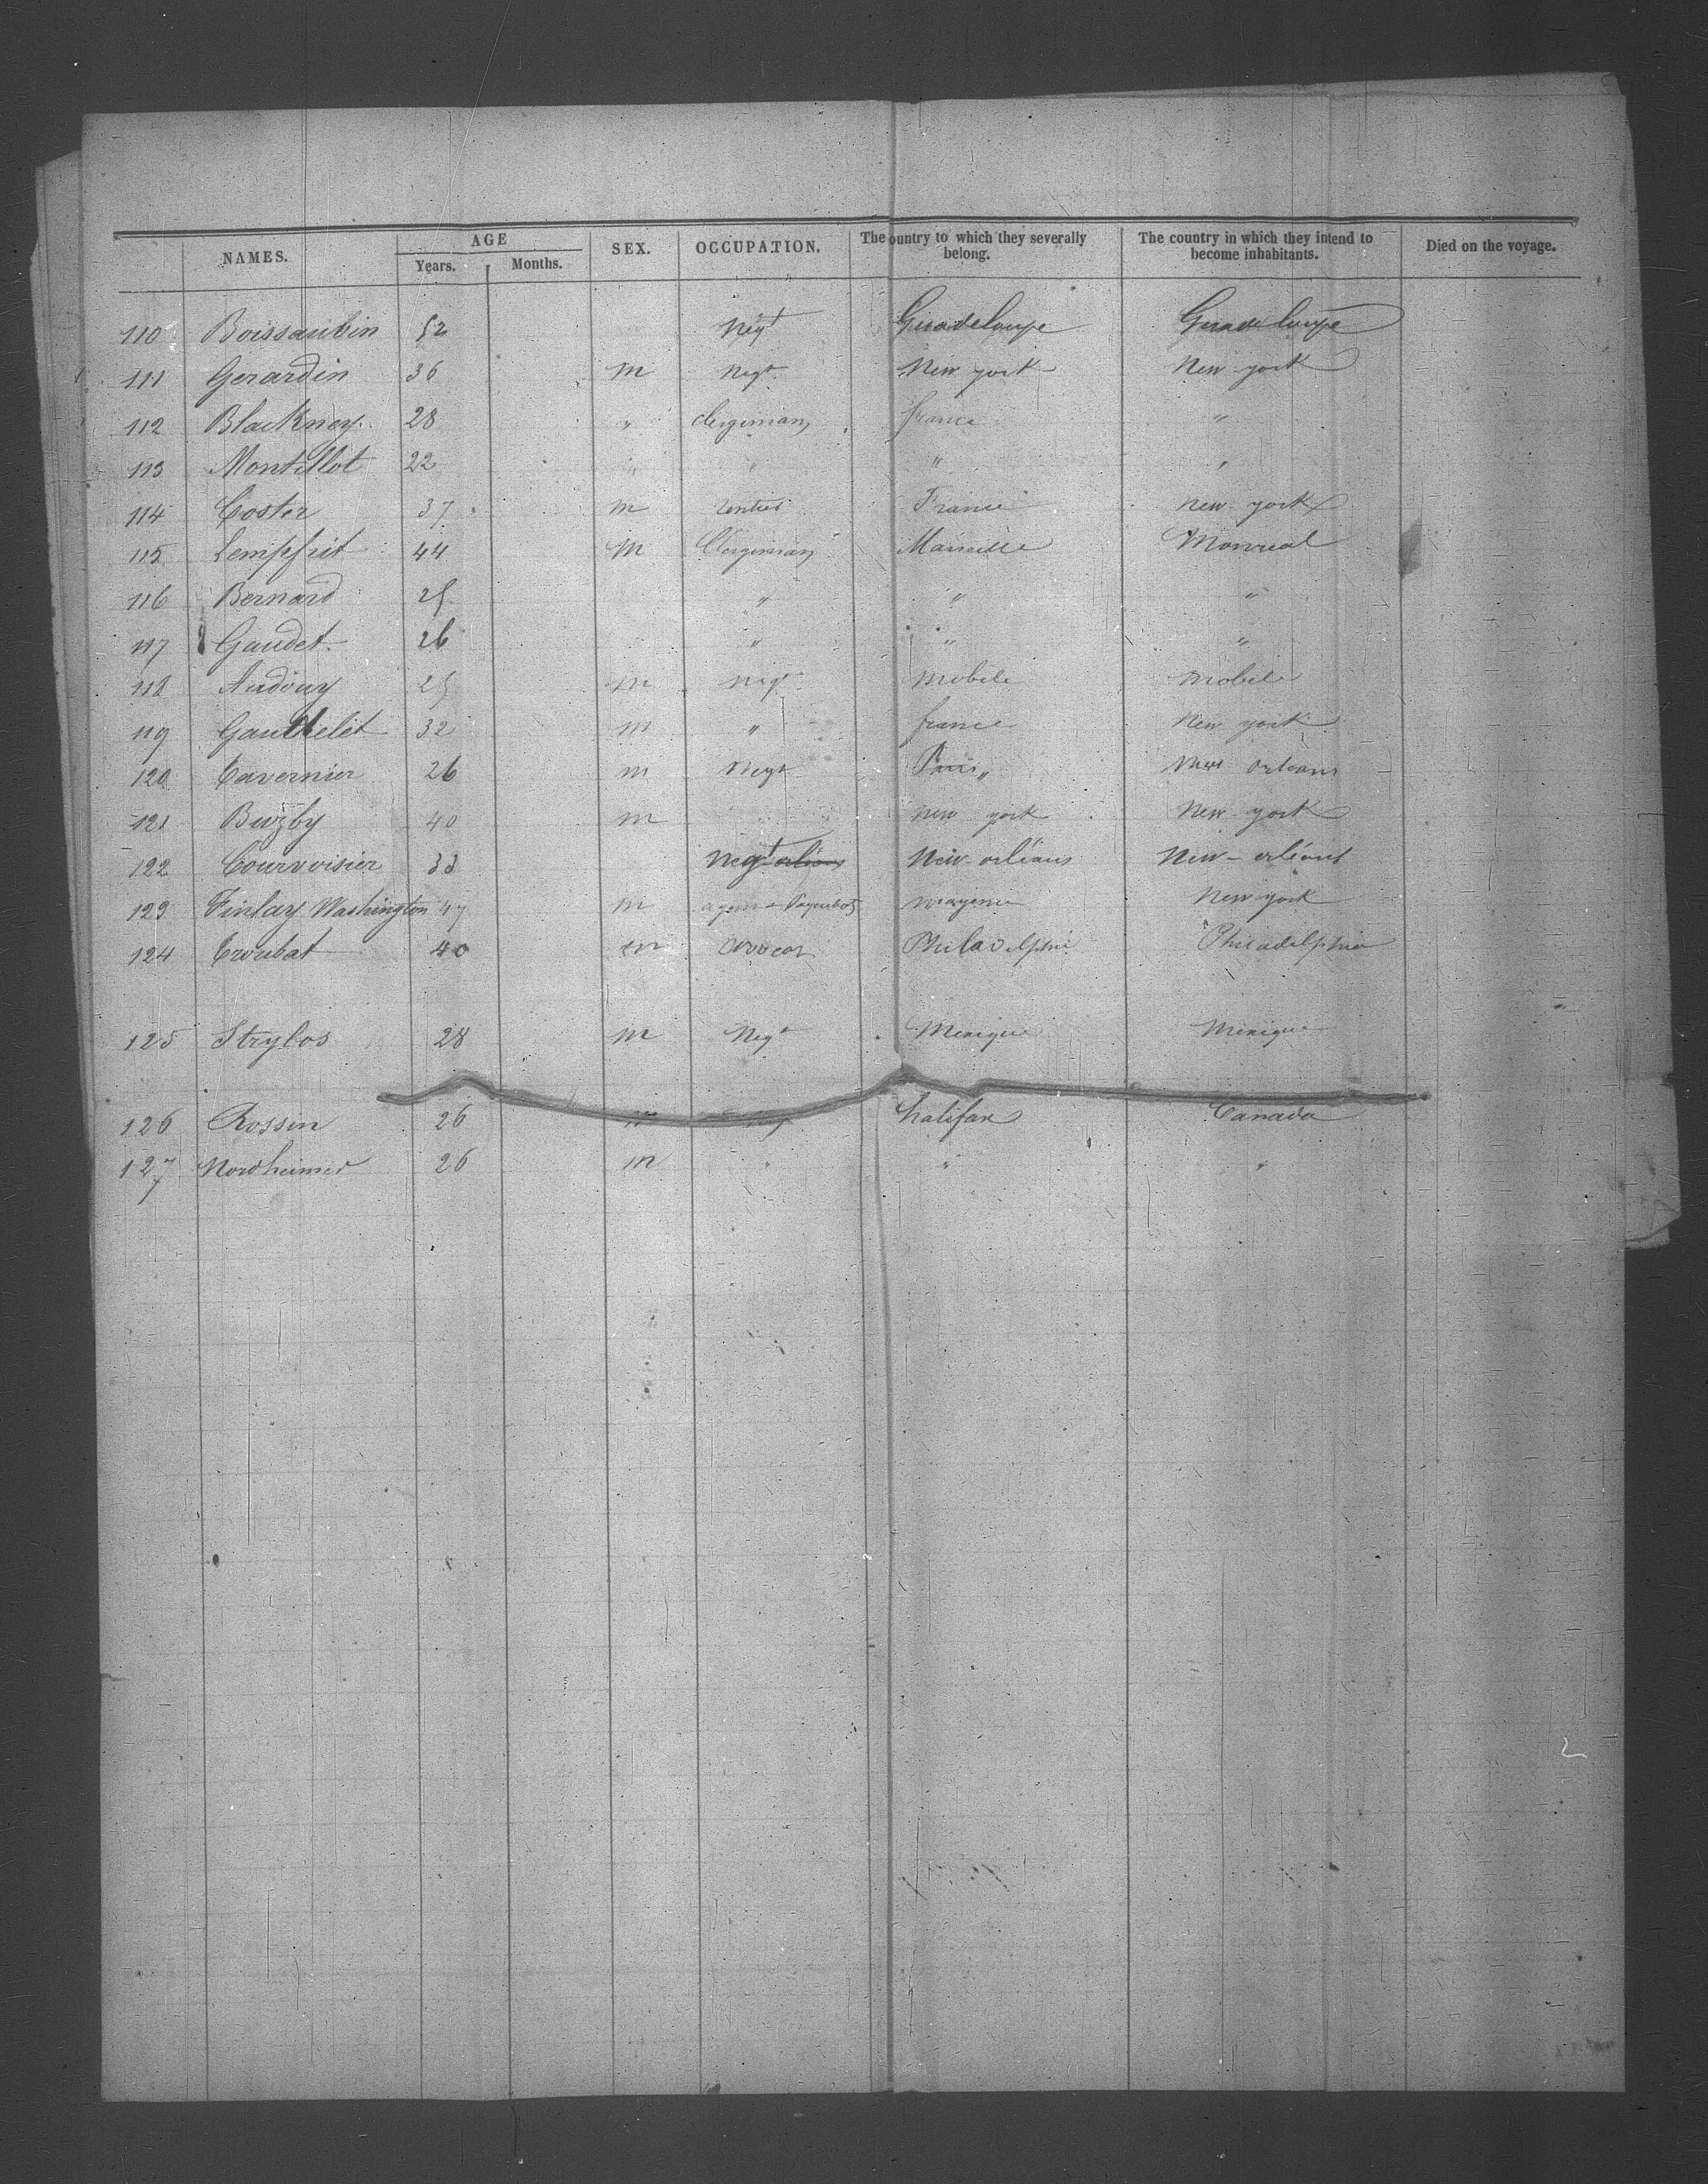 NAMES. AGE Years. Months. SEX. OCCUPATION. The ountry to which they severally belong. The country in which they intend to become inhabitants. Died on the voyage.
110 Boissaubin 52 Negt Guadeloupe Guadeloupe
111 Gerardin 36 M Negt New york New york
112 Blackney 28 " Clergiman france "
113 Montillot 22 " " " "
114 Coster 37 m rentier France new york
115 Lempfrit 44 M Clergiman Marseille Monreal
116 Bernard 25 " " "
117 Gaudet 26 " " "
118 Audouy 25 m negt mobile mobile
119 Gauthelet 32 m " france New york
120 Tavernier 26 m Negt Paris " New orleans
121 Buzby 40 m " new york New york
122 Courvoisier 33 Negt orléans New-orléans New-orléans
123 Finlay Washington 47 m New york
124 Troubat 40 m avocat Philadelphie Philadelphia
125 Strybos 28 m Negt Mexique Mexique
126 Rossin 26 m Negt halifax Canada
127 Nordheimer 26 m " " "